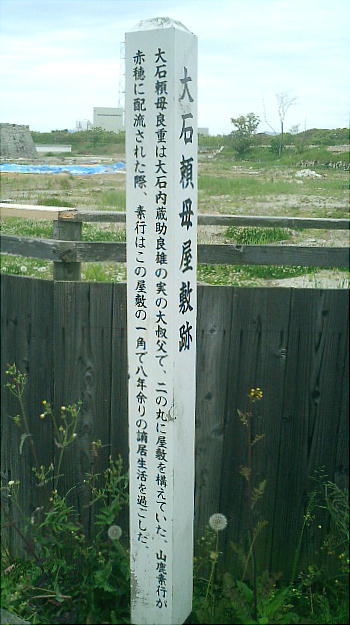 大石頼母屋敷跡
大石頼母良重は大石内蔵助良雄の実の大叔父で、二の丸に屋敷を構えていた。山鹿素行が
赤穂に配流された際、素行はこの屋敷の一角で八年余りの謫居生活を過ごした。